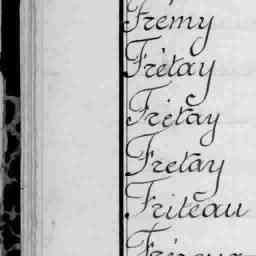 Frémy
Frétay
Frétay
Fretay
Friteau